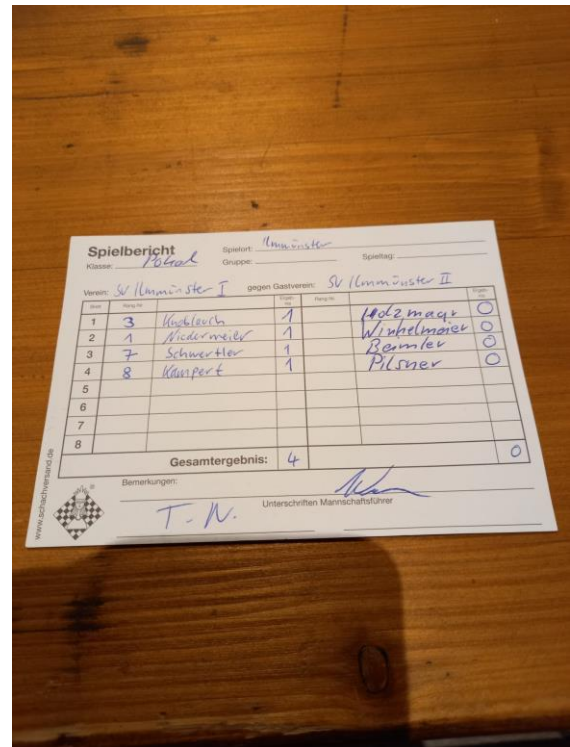 Spielbericht Spielort: Ilmmünster
Klasse: Pokal Gruppe: Spieltag:
Verein: SV Ilmmünster I gegen Gastverein: SV Ilmmünster II
Brett Rang-Nr. Ergeb-nis Rang-Nr. Ergeb-nis
1 3 Knoblauch 1 Holzmayr 0
2 1 Niedermeier 1 Winkelmaier 0
3 7 Schwertler 1 Beimler 0
4 8 Kampert 1 Pilsner 0
5
6
7
8
Gesamtergebnis: 4 0
Bemerkungen:
T. N. Unterschriften Mannschaftsführer
www.schachversand.de